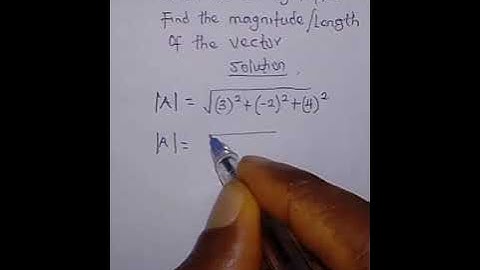 Find the magnitude/Length
Of the vector
Solution.
|A| = √(3)²+(-2)²+(4)²
|A| = √